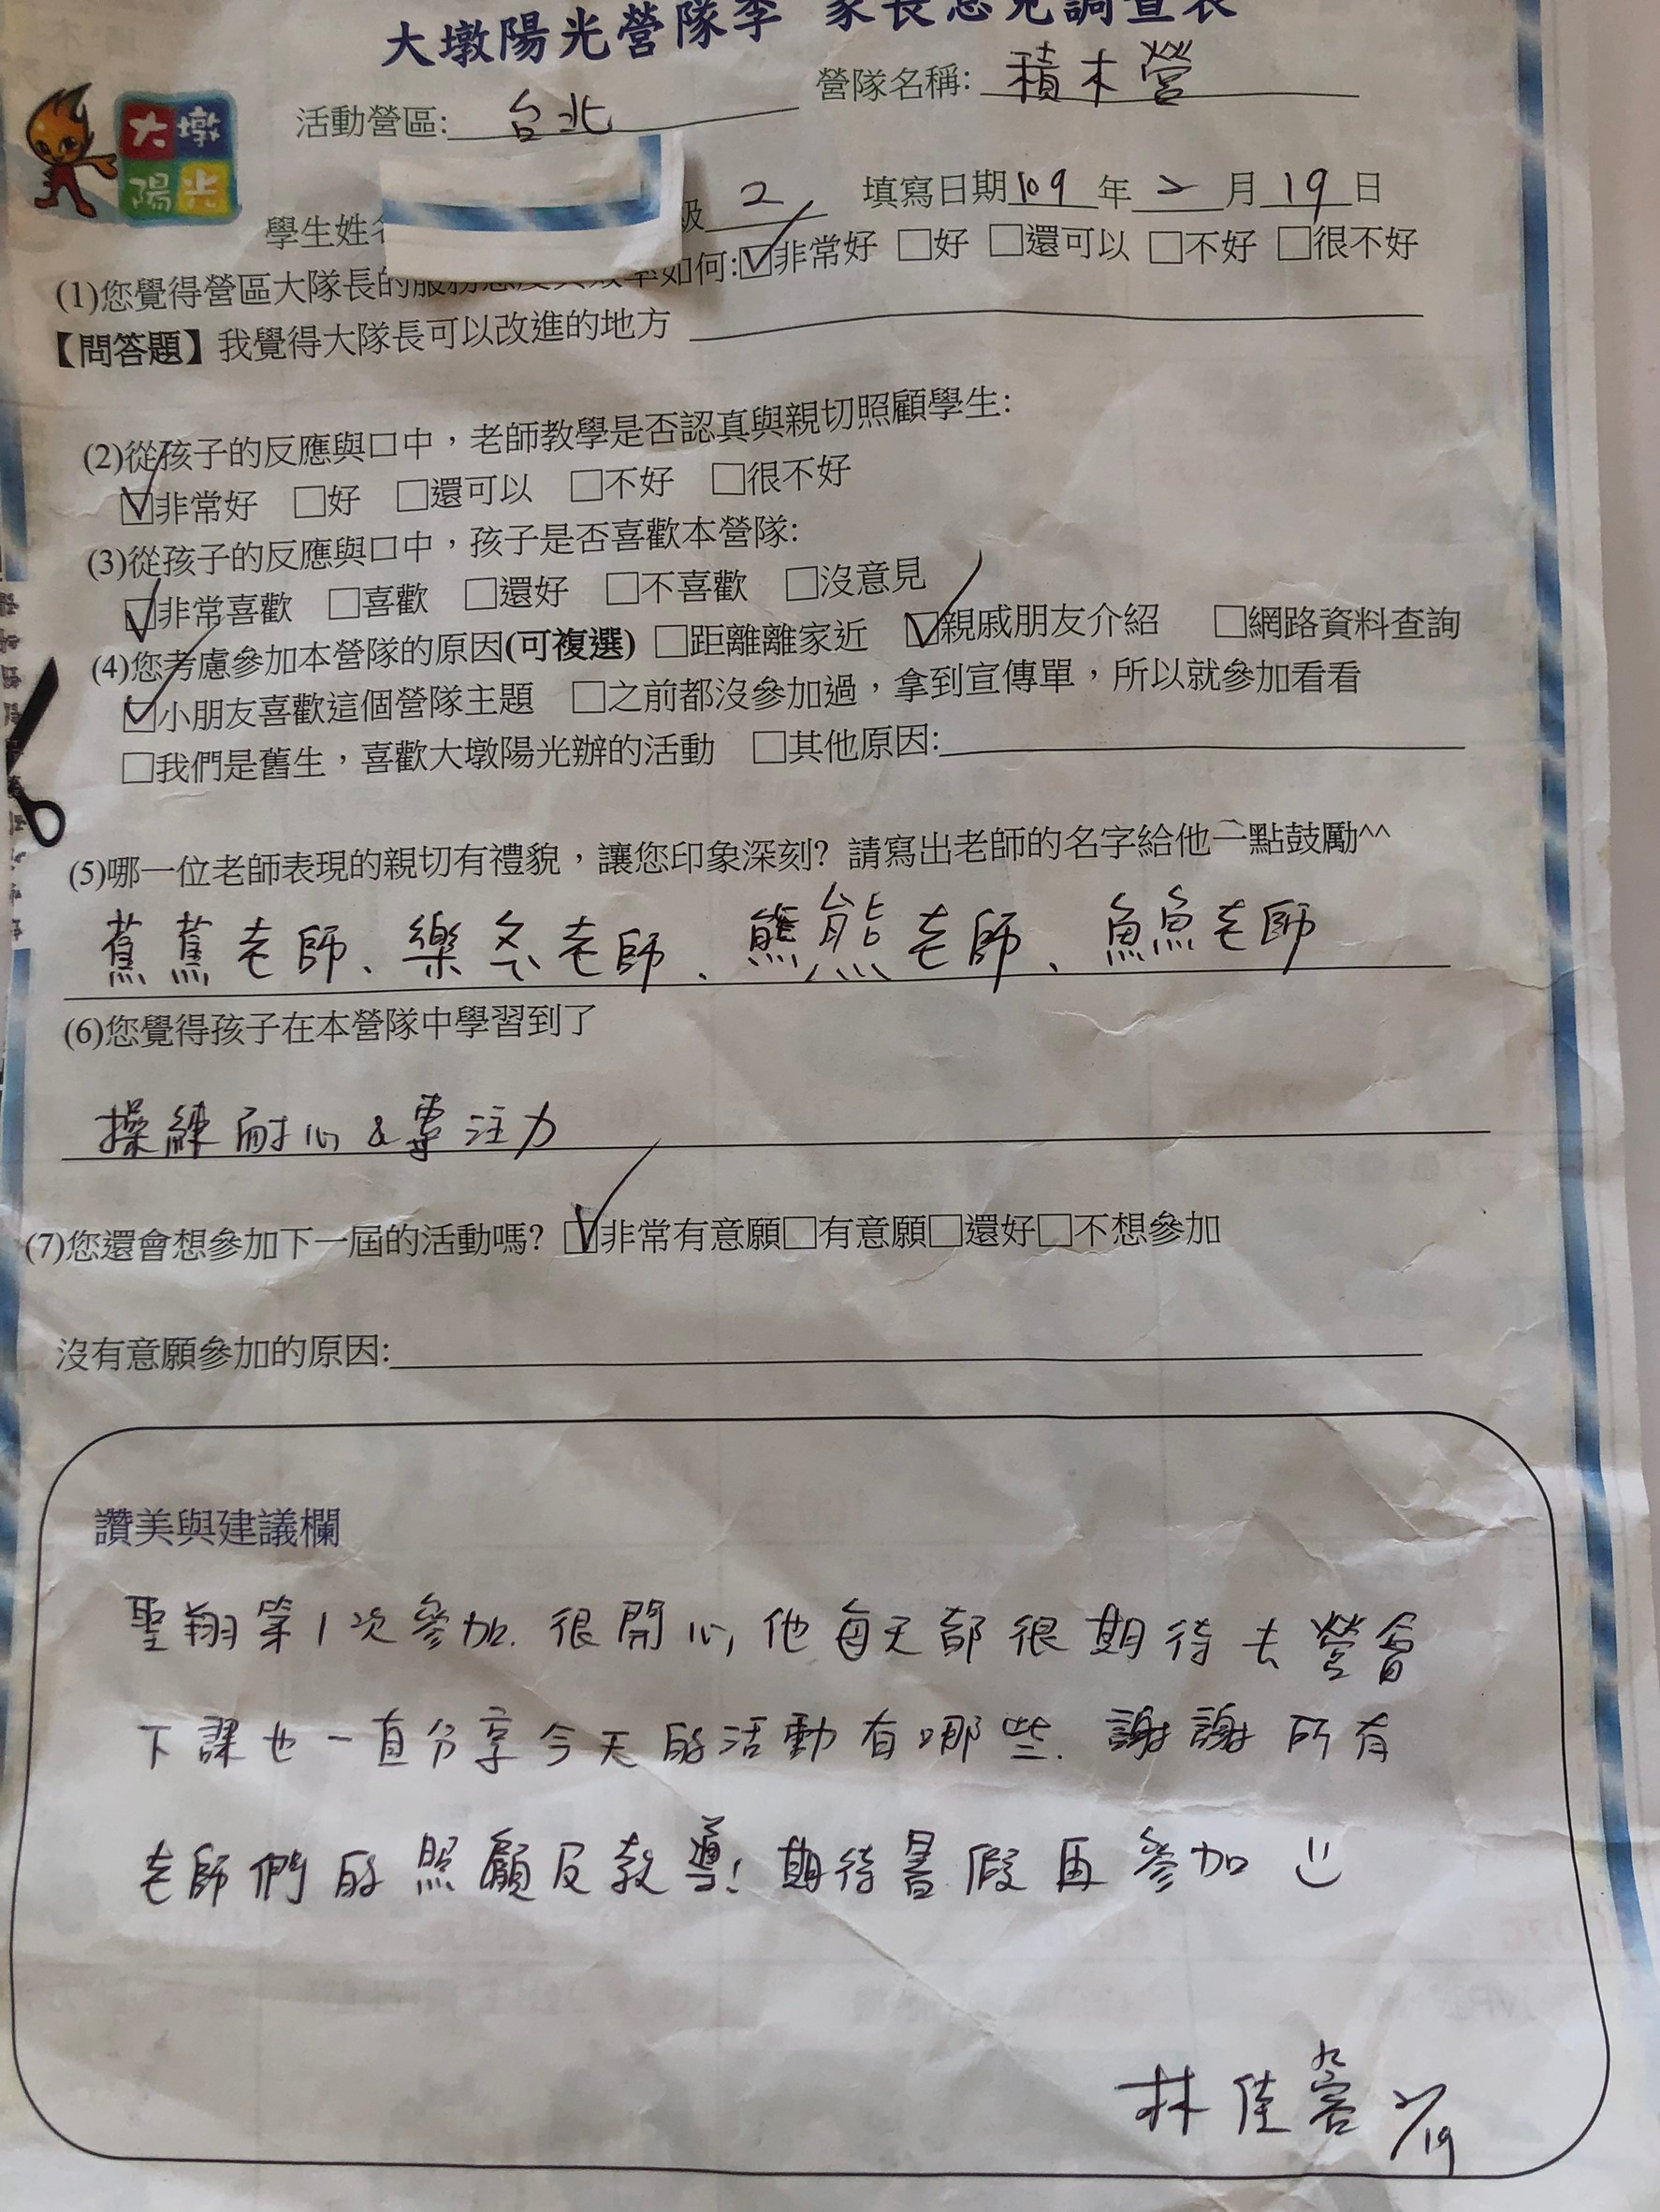 大墩陽光營隊季 家長意見調查表
活動營區: 台北 營隊名稱: 積木營
大墩
陽光
學生姓名 級 2 填寫日期 109 年 2 月 19 日
(1)您覺得營區大隊長的服務態度與效率如何:☑非常好 □好 □還可以 □不好 □很不好
【問答題】我覺得大隊長可以改進的地方
(2)從孩子的反應與口中，老師教學是否認真與親切照顧學生:
☑非常好 □好 □還可以 □不好 □很不好
(3)從孩子的反應與口中，孩子是否喜歡本營隊:
☑非常喜歡 □喜歡 □還好 □不喜歡 □沒意見
(4)您考慮參加本營隊的原因(可複選) □距離離家近 ☑親戚朋友介紹 □網路資料查詢
☑小朋友喜歡這個營隊主題 □之前都沒參加過，拿到宣傳單，所以就參加看看
□我們是舊生，喜歡大墩陽光辦的活動 □其他原因:
(5)哪一位老師表現的親切有禮貌，讓您印象深刻? 請寫出老師的名字給他一點鼓勵^^
蕉蕉老師、樂冬老師、熊熊老師、魚魚老師
(6)您覺得孩子在本營隊中學習到了
操練耐心&專注力
(7)您還會想參加下一屆的活動嗎? ☑非常有意願□有意願□還好□不想參加
沒有意願參加的原因:
讚美與建議欄
聖翔第1次參加.很開心,他每天都很期待去營會
下課也一直分享今天的活動有哪些.謝謝所有
老師們的照顧及教導!期待暑假再參加
林佳 2/19